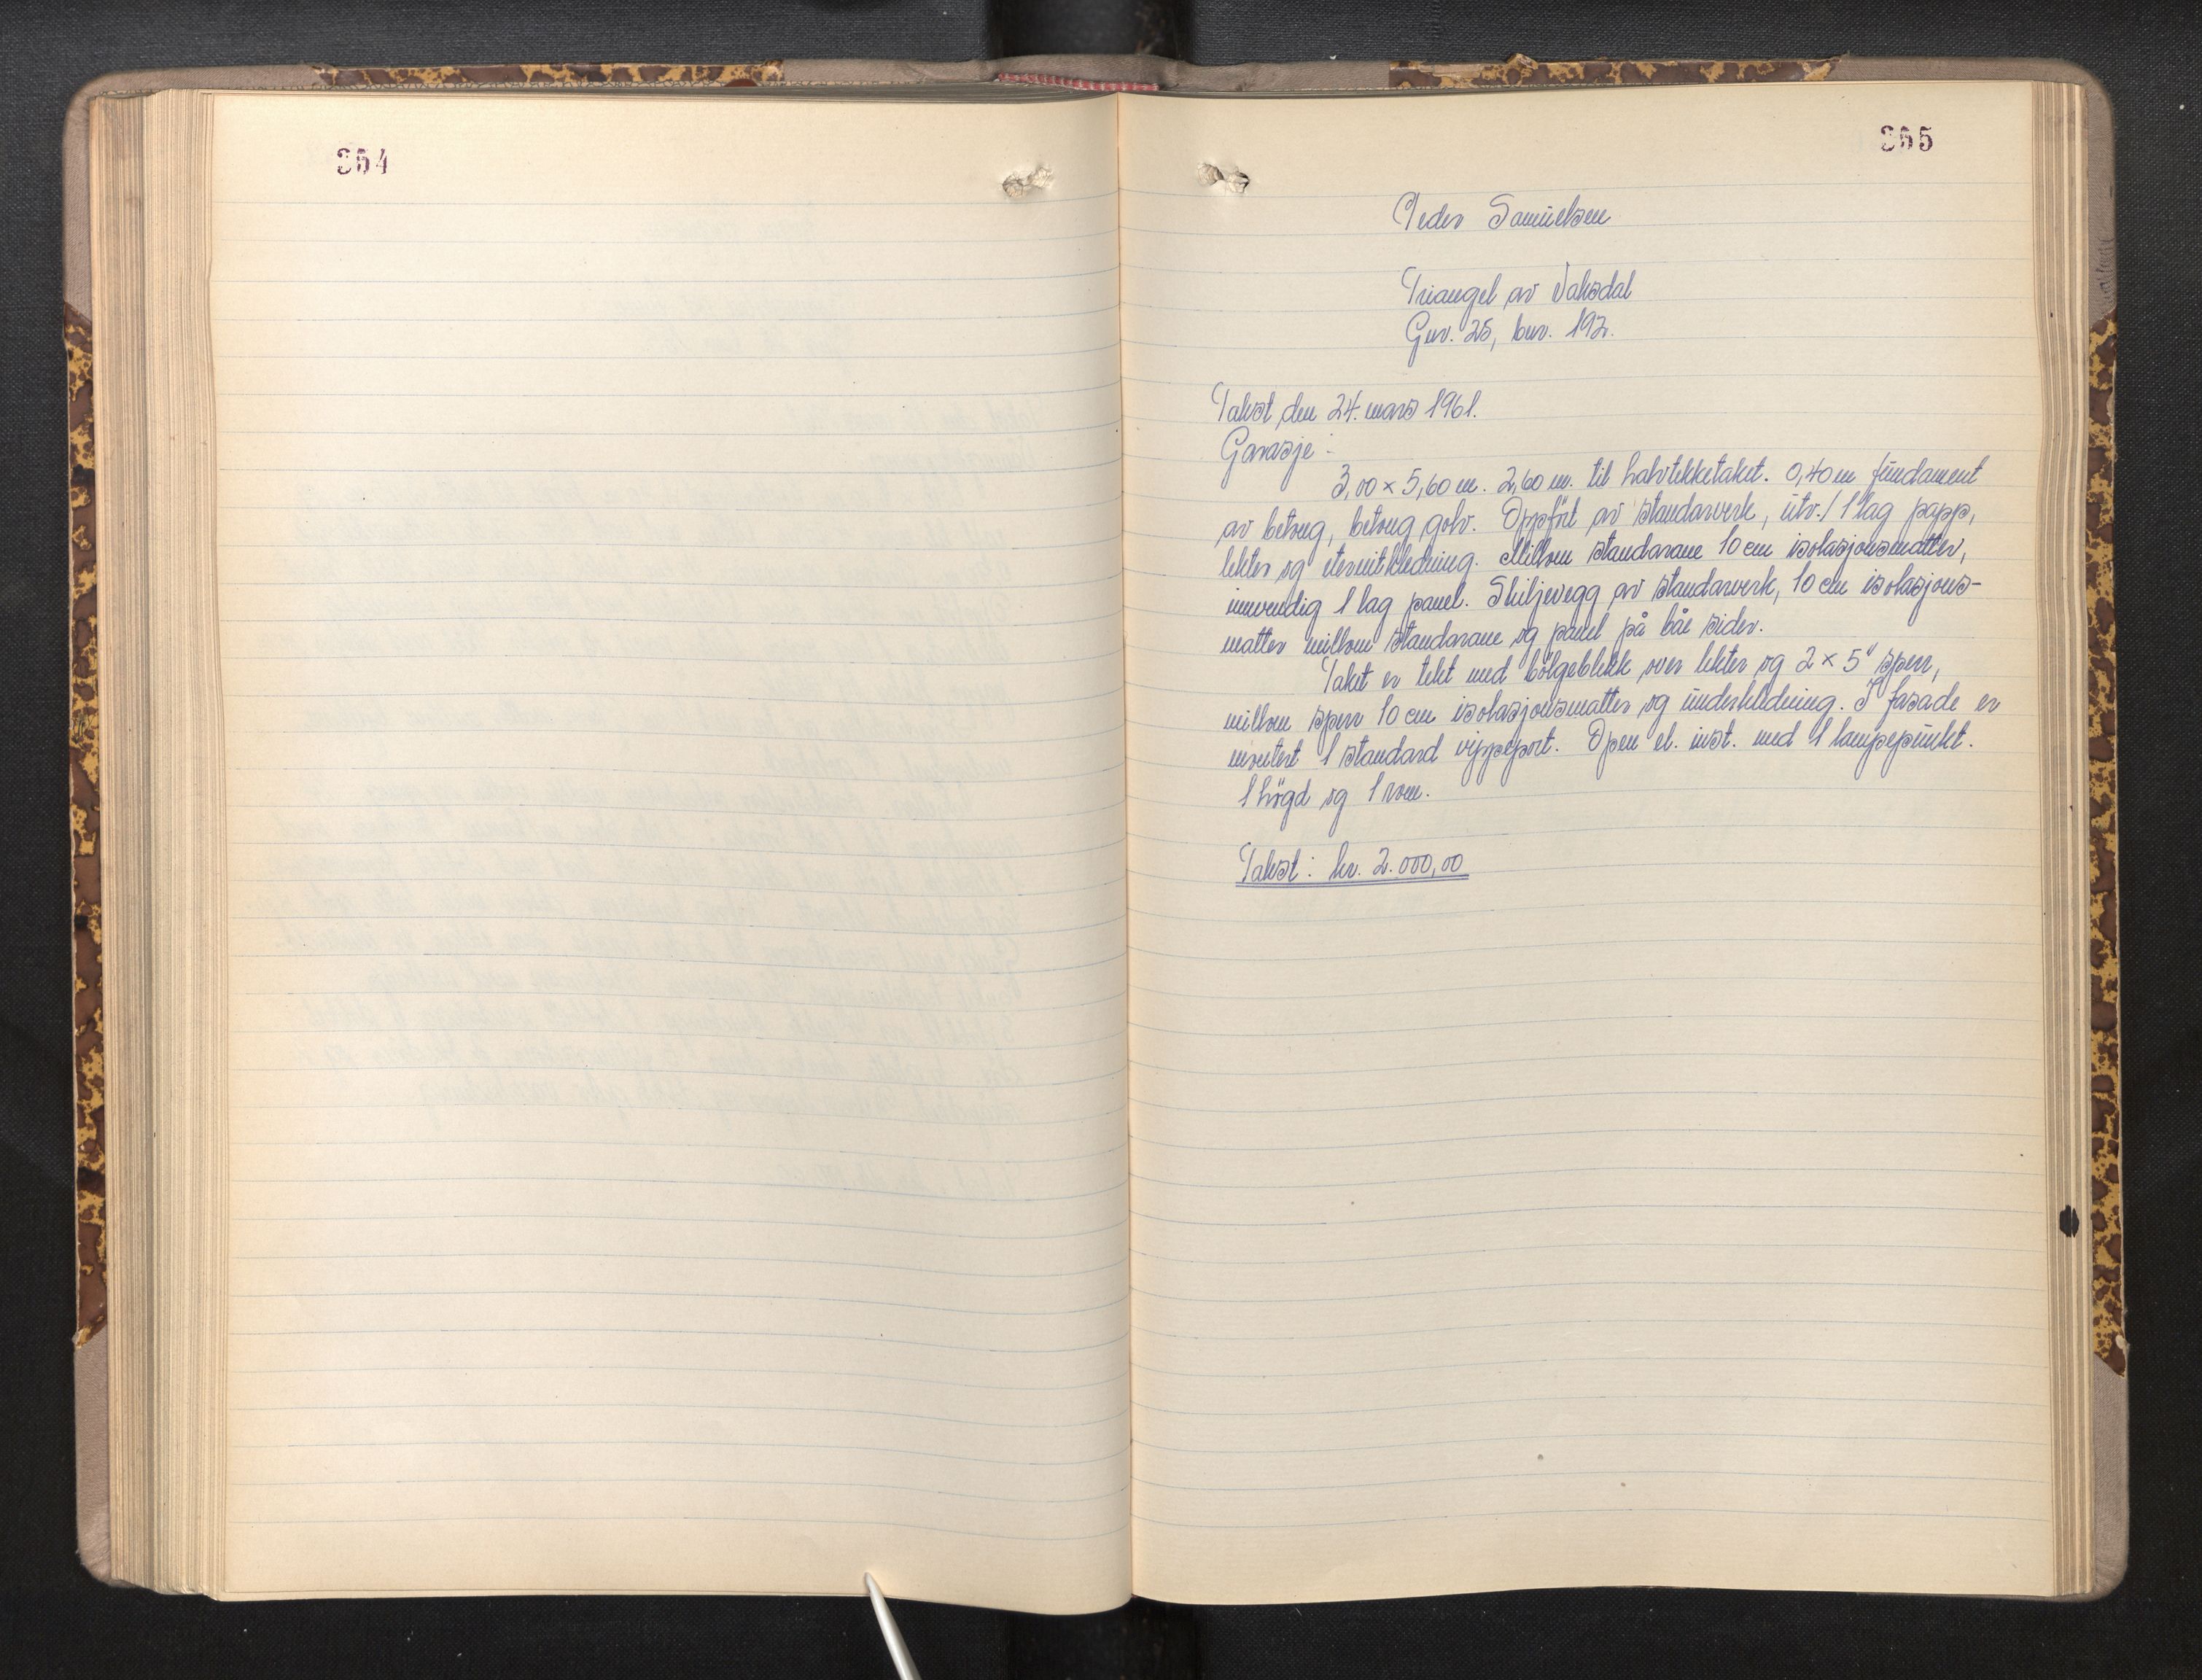 364
365
Peder Samuelsen
Triangel av Vaksdal
Gnr. 25, bnr. 192.
Takst den 24. mars 1961.
Garasje:
3,00 × 5,60 m. 2,60 m. til halvtekketaket. 0,40 m fundament
av betong, betong golv. Oppført av standarverk, utv./ 1 lag papp,
lekter og eternitkledning. Millom standarane 10 cm isolasjonsmatter,
innvendig 1 lag panel. Skiljevegg av standarverk, 10 cm isolasjons-
matter millom standarane og panel på båe sider.
Taket er tekt med bølgeblekk over lekter og 2 × 5" sperr,
millom sperr 10 cm isolasjonsmatter og underkledning. I fasade er
montert 1 standard vippeport. Open el. inst. med 1 lampepunkt.
1 høgd og 1 rom.
Takst: kr. 2.000,00